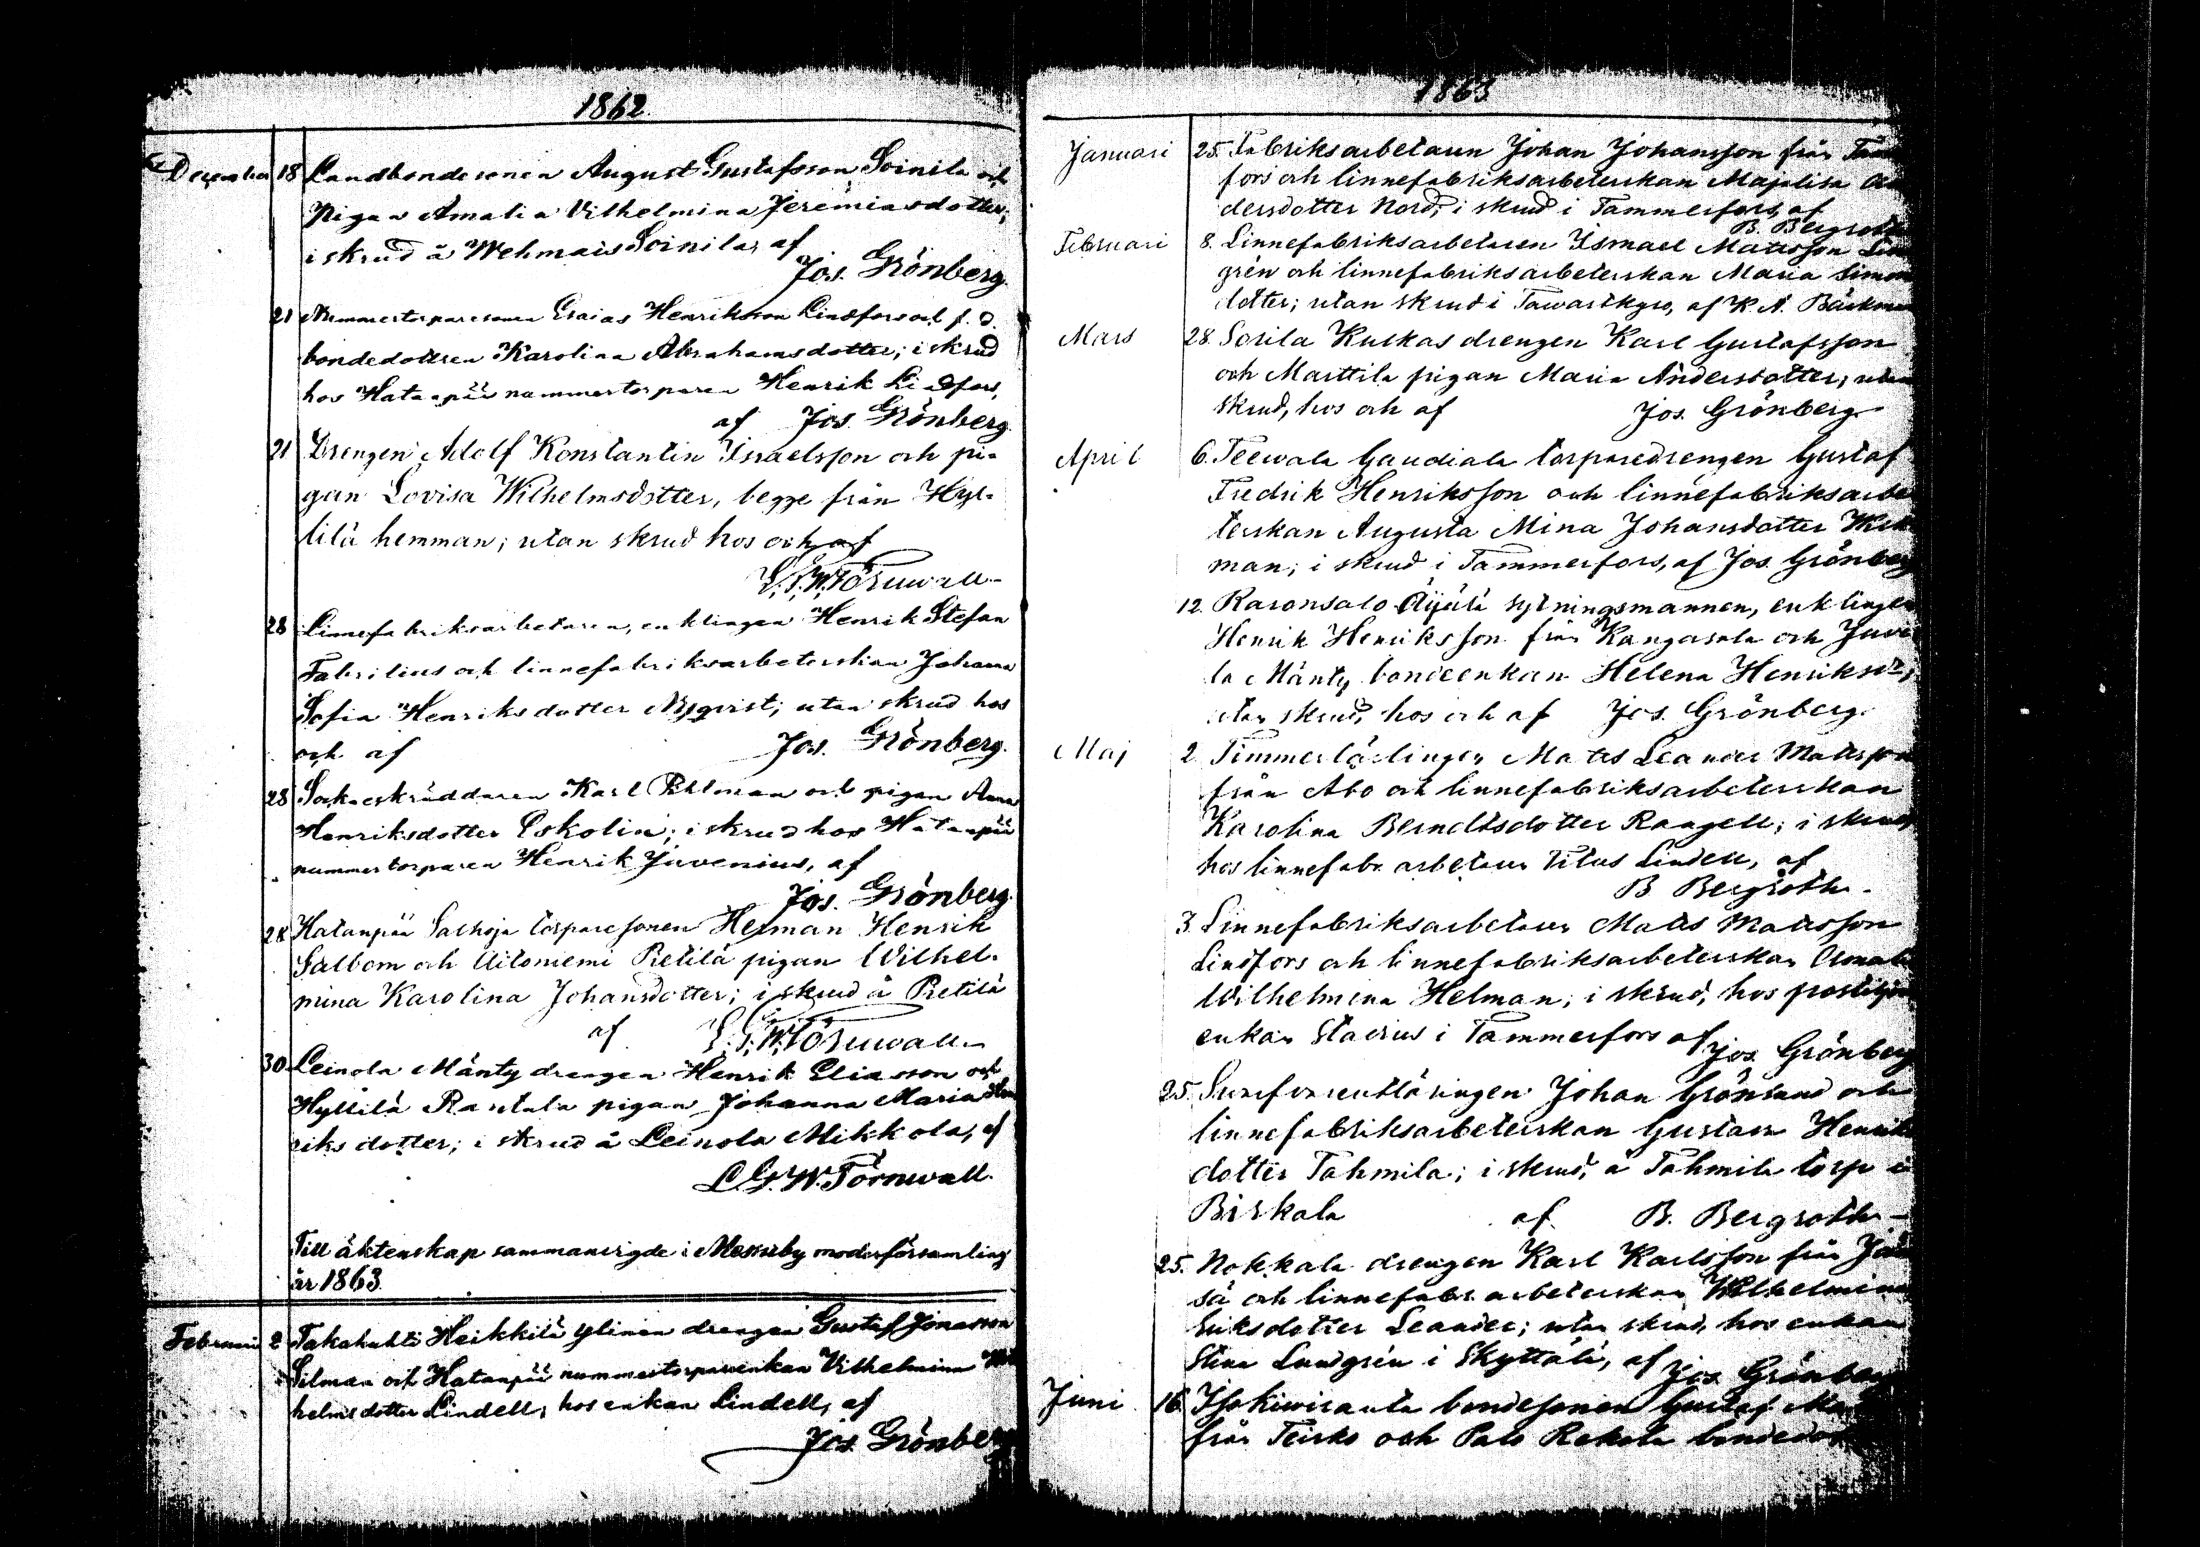 1862.
December 18 Landbondesonen August Gustafsson Soinila och
Pigan Amalia Vilhelmina Jeremiasdotter;
i skrud å Wehmais Soinila, af
Jos. Grönberg.
21 Nummertorparesonen Esaias Henriksson Lindfors och f. d.
bondedottren Karolina Abrahamsdotter; i skrud
hos Hatanpää nummertorparen Henrik Lindfors,
af Jos. Grönberg.
21 Drengen Adolf Konstantin Israelsson och pi-
gan Lovisa Wilhelmsdotter, begge från Hyl-
lilä hemman; utan skrud hos och af
L. G. W. Törnwall
28 Linnefabriksarbetaren, enklingen Henrik Stefan
Fabrilius och linnefabriksarbeterskan Johanna
Sofia Henriksdotter Nyqvist; utan skrud hos
och af Jos. Grönberg.
28 Sockneskräddaren Karl Pihlman och pigan Anna
Henriksdotter Eskolin; i skrud hos Hatanpää
nummertorparen Henrik Juvenius, af
Jos. Grönberg.
28 Hatanpää Salhoja torparesonen Herman Henrik
Salbom och Aitoniemi Pietilä pigan Wilhel-
mina Karolina Johansdotter; i skrud å Pietilä
af L. G. W. Törnwall
30 Leinola Mänty drengen Henrik Eliasson och
Hyllilä Rautala pigan Johanna Maria Hen
riksdotter; i skrud å Leinola Mikkola, af
L. G. W. Törnwall.
Till äktenskap sammanvigde i Messuby moderförsamling
år 1863.
Februari 2 Takahuhti Heikkilä Ylinen drengen Gustaf Jonasson
Silman och Hatanpää nummertorpareenkan Vilhelmina Wil
helmsdotter Lindell, hos enkan Lindell, af
Jos. Grönberg
1863
Januari 25. Fabriksarbetaren Johan Johansson från Tam
fors och linnefabriksarbeterskan Majalisa An
dersdotter Nord; i skrud i Tammerfors, af
B. Bergroth
Februari 8. Linnefabriksarbetaren Ismael Mattsson Lin
grén och linnefabriksarbeterskan Maria Simon
dotter; utan skrud i Tawastkyro, af K. A. Bäckman
Mars 28. Sorila Kuckas drengen Karl Gustafsson
och Marttila pigan Maria Andersdotter; utan
skrud, hos och af Jos. Grönberg.
April 6. Teewala Gaudiala torparedrengen Gustaf
Fredrik Henriksson och linnefabriksarbe
terskan Augusta Mina Johansdotter Wek
man; i skrud i Tammerfors, af Jos. Grönberg
12. Raronsalo Äijälä sytningsmannen, enklingen
Henrik Henriksson från Kangasala och Juvi
la Mänty bondeenkan Helena Henriksdr;
utan skrud, hos och af Jos. Grönberg.
Maj 2. Timmerlärlingen Matts Leander Mattsson
från Åbo och linnefabriksarbeterskan
Karolina Berndtsdotter Rangell; i skrud
hos linnefabr. arbetaren Titus Lindell, af
B. Bergroth.
3. Linnefabriksarbetaren Matts Mattsson
Lindfors och linnefabriksarbeterskan Amali
Wilhelmina Helman; i skrud, hos postiljon
enkan Stadius i Tammerfors af Jos. Grönberg
25. Johan Grönlund och
linnefabriksarbeterskan Gustava Henriks
dotter Tahmila; i skrud, å Tahmila torp i
Birkala af B. Bergroth.
25. Nokkala drengen Karl Karlsson från Jäm
sä och linnefabr. arbeterskan Wilhelmina
Eriksdotter Leander; utan skrud, hos enkan
Stina Lundgrén i Skyttälä, af Jos. Grönberg
Juni 16. Isokiviranta bondesonen Gustaf
från Teisko och Palo Rekola bondedot